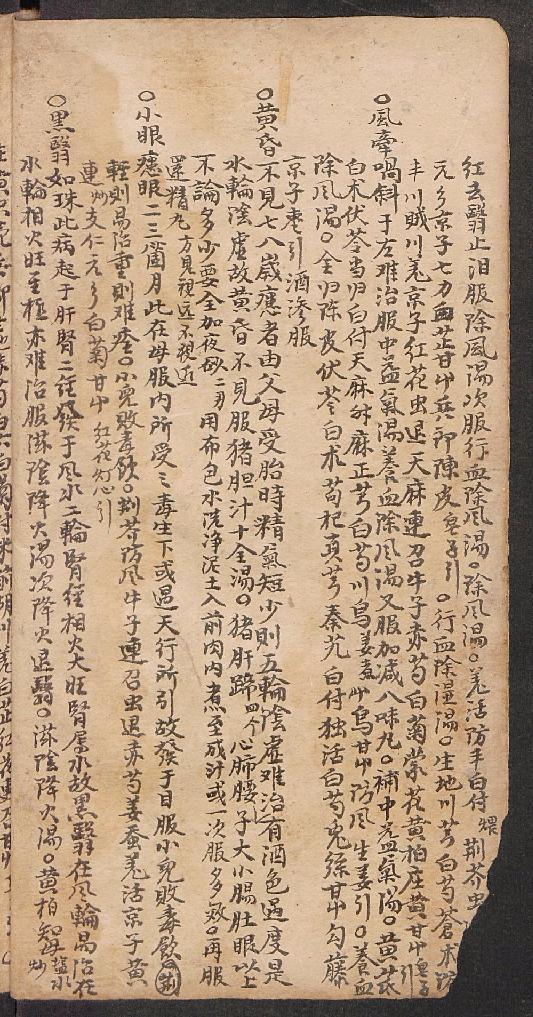 红去翳止泪服除風湯次服行血除風湯○除風湯○羌活防丰白付 煨 荆芥虫
元参京子七力面芷甘艸兵郎陳皮皂子引○行血除湿湯○生地川芎白芍蒼术防
丰川贼川羌京子红花虫退天麻連召牛子赤芍白菊蒙花黄柏
○風牽喎斜于左难治服中益氣湯養血除風湯又服加减八味丸○補中益氣湯○黄芪
白术伏苓当归白付天麻升麻正芎白芍川烏姜蚕艸烏甘艸防风生姜引○養血
除风湯○全归陈皮伏苓白术苟杞真芎秦艽白付独活白芍兎絲甘艸勾藤
京子枣引酒渗服
○黄昏不見七八歲應者由父母受胎時精氣短少則五輪陰虚难治有酒色過度是
水輪陰虚故黄昏不見服猪胆汁十全湯○猪肝蹄四个心肺腰子大小腸肚眼以上
不論多少要全加夜砂二刃用布包水洗净泥土入前肉内煮至成汁或一次服多次○再服
還精丸 方見視远不視近
○小眼應眼一三箇月此在母服内所受之毒生下或遇天行所引故發于目服小兒敗毒飲○荆
輕則易治重則难痊○小兒敗毒飲○荆芥防风牛子連召虫退赤芍姜蚕羌活京子黄
連炒支仁元参白菊甘艸 红花灯心引
○黑翳如珠此病起于肝腎二経發于风水二輪腎經相火大旺腎属水故黑翳在风輪易治在
水輪相火旺至極亦难治服滋陰降火湯次降火退翳○滋陰降火湯○黄柏知母盐水炒